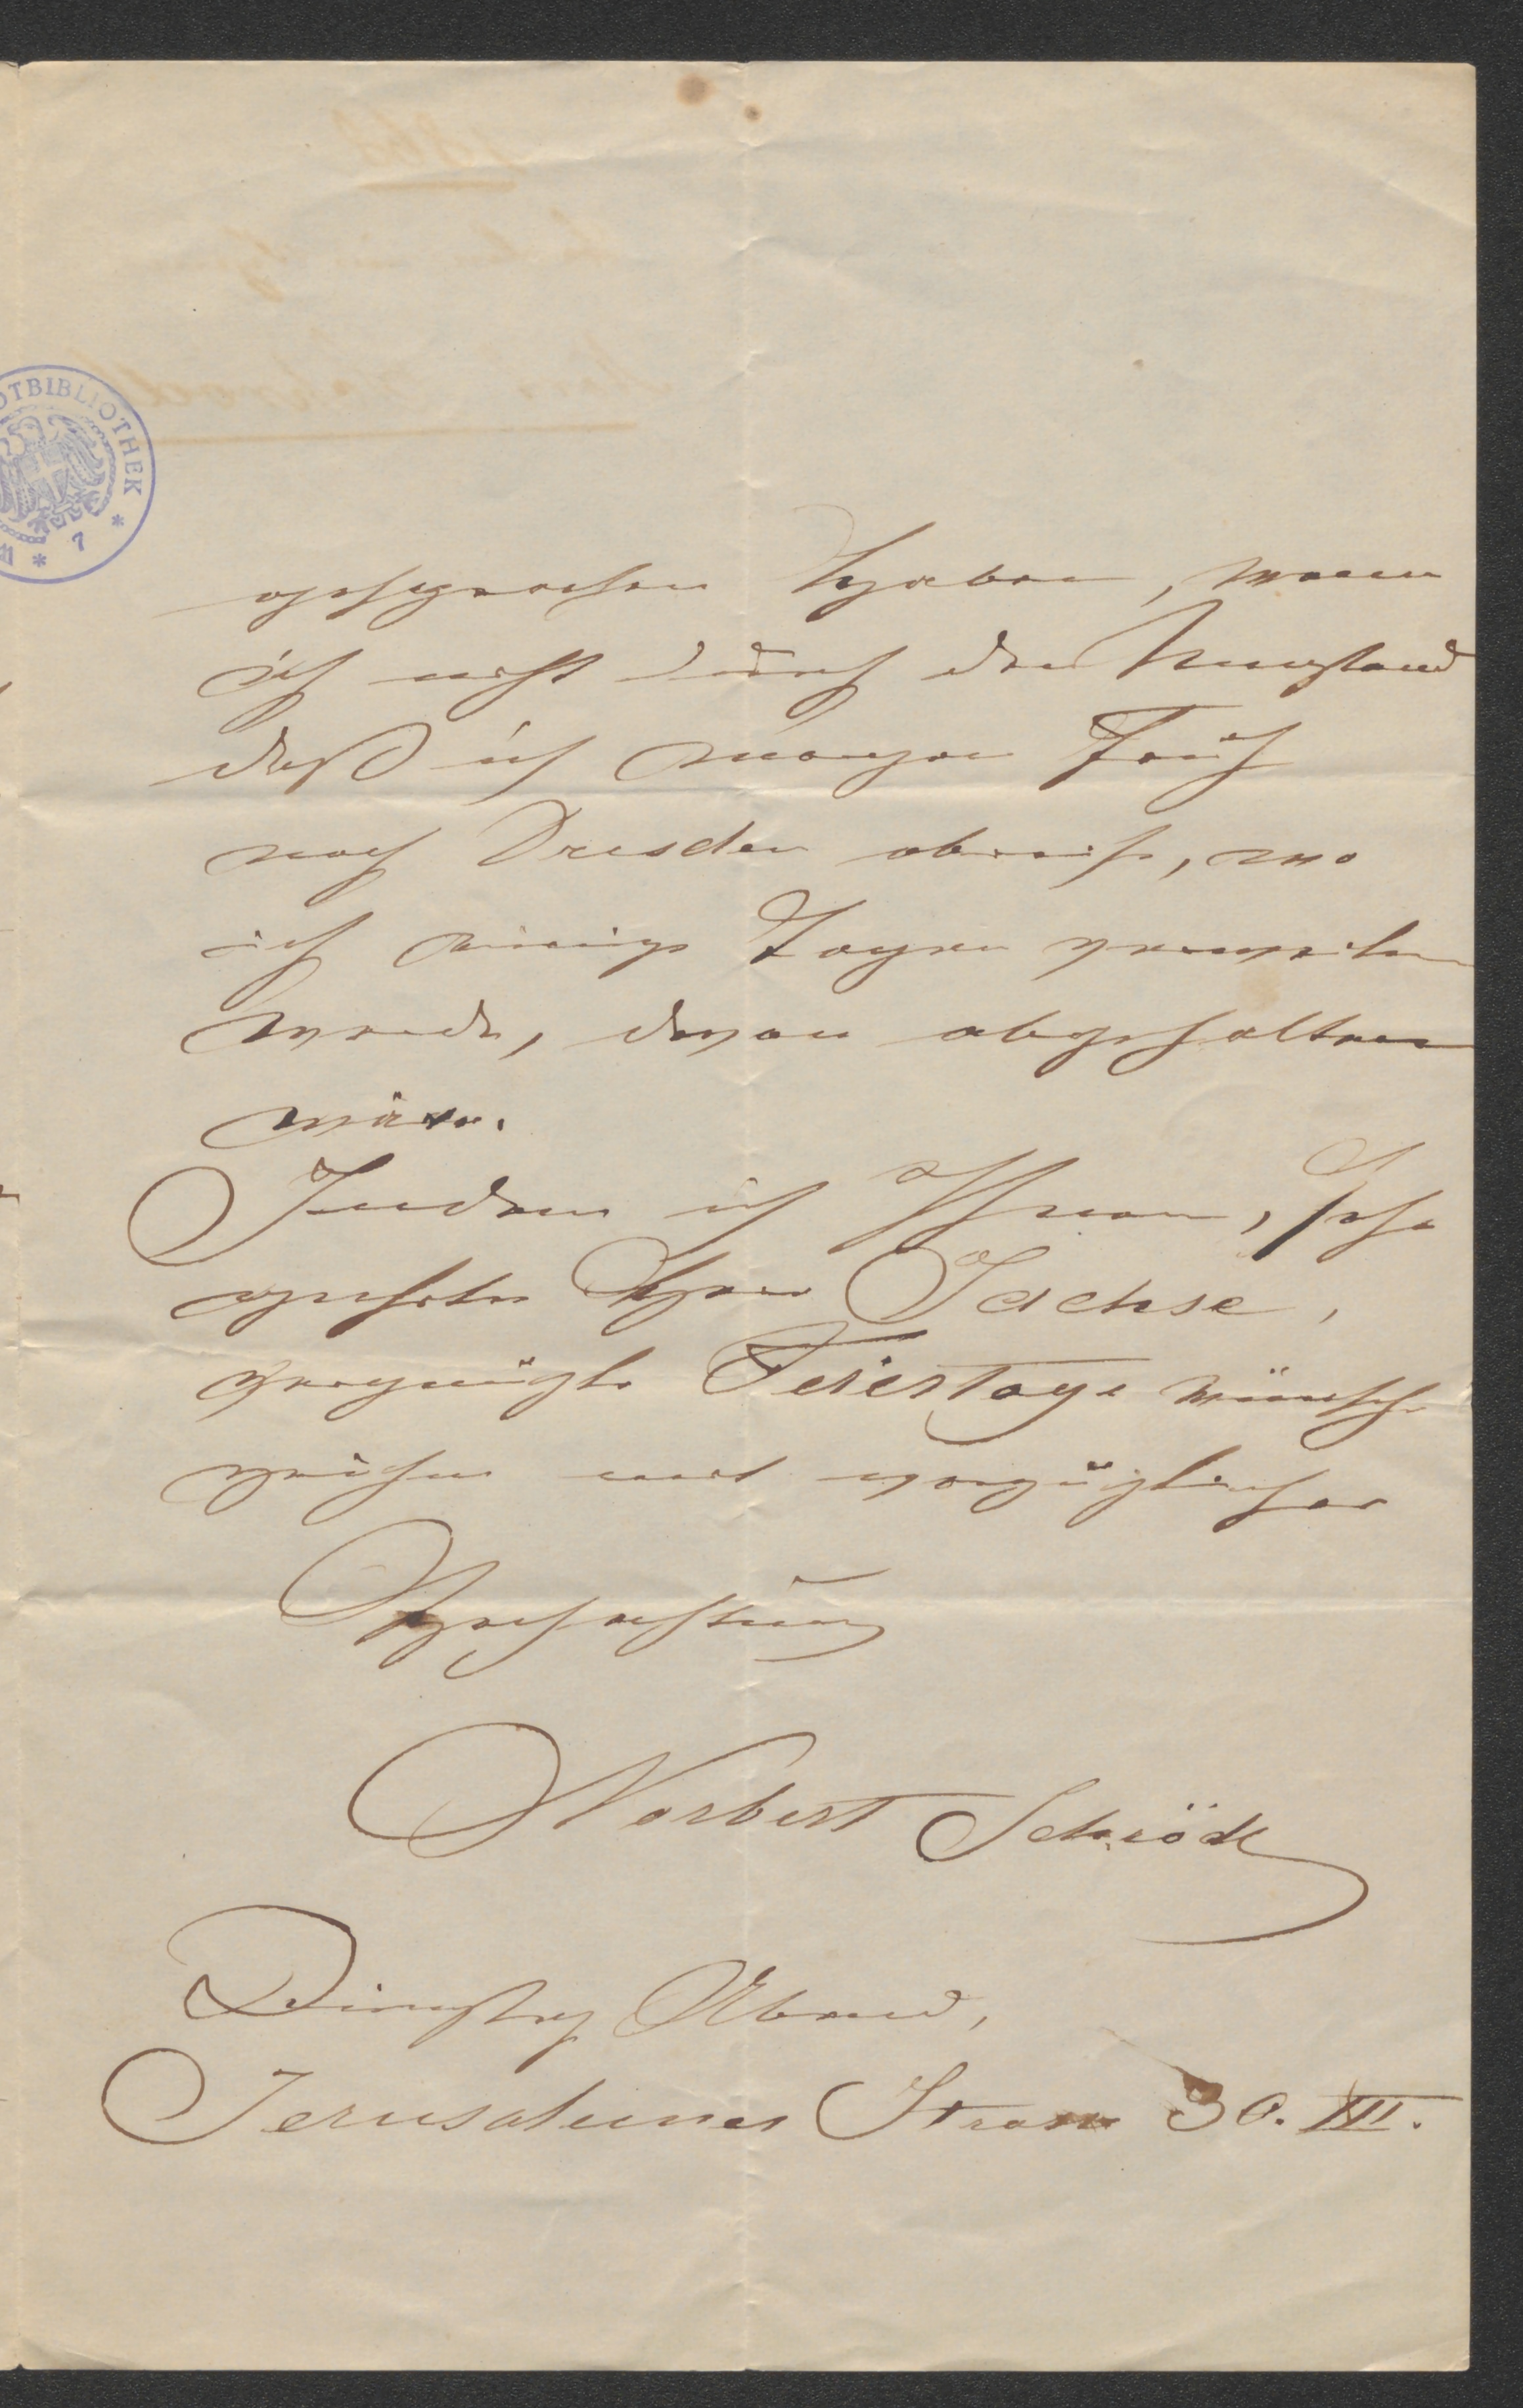 OTBIBLIOTHEK
* 7 *
gesprochen haben, wenn
ich nicht durch den Umstand
daß ich morgen Früh
nach Dresden abreise, wo
ich einige Tage verweilen
werde, davon abgehalten
wäre.
Indem ich Ihnen, sehr
geehrter Herr Sachse,
vergnügte Feiertage wünsche
zeichne mit vorzüglicher
Hochachtung
Norbert Schrödl
Dienstag Abend,
Jerusalemer Strasse 30. III.